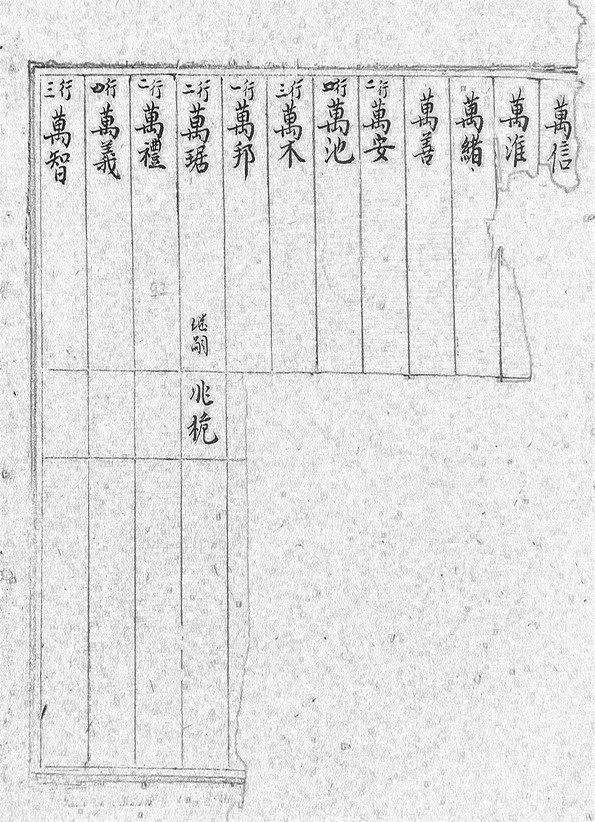 萬信
萬淮
萬緒
萬善
行二萬安
行四萬池
行三萬木
行一萬邦
行二萬琚 继嗣 兆桅
行二萬禮
行四萬義
行三萬智